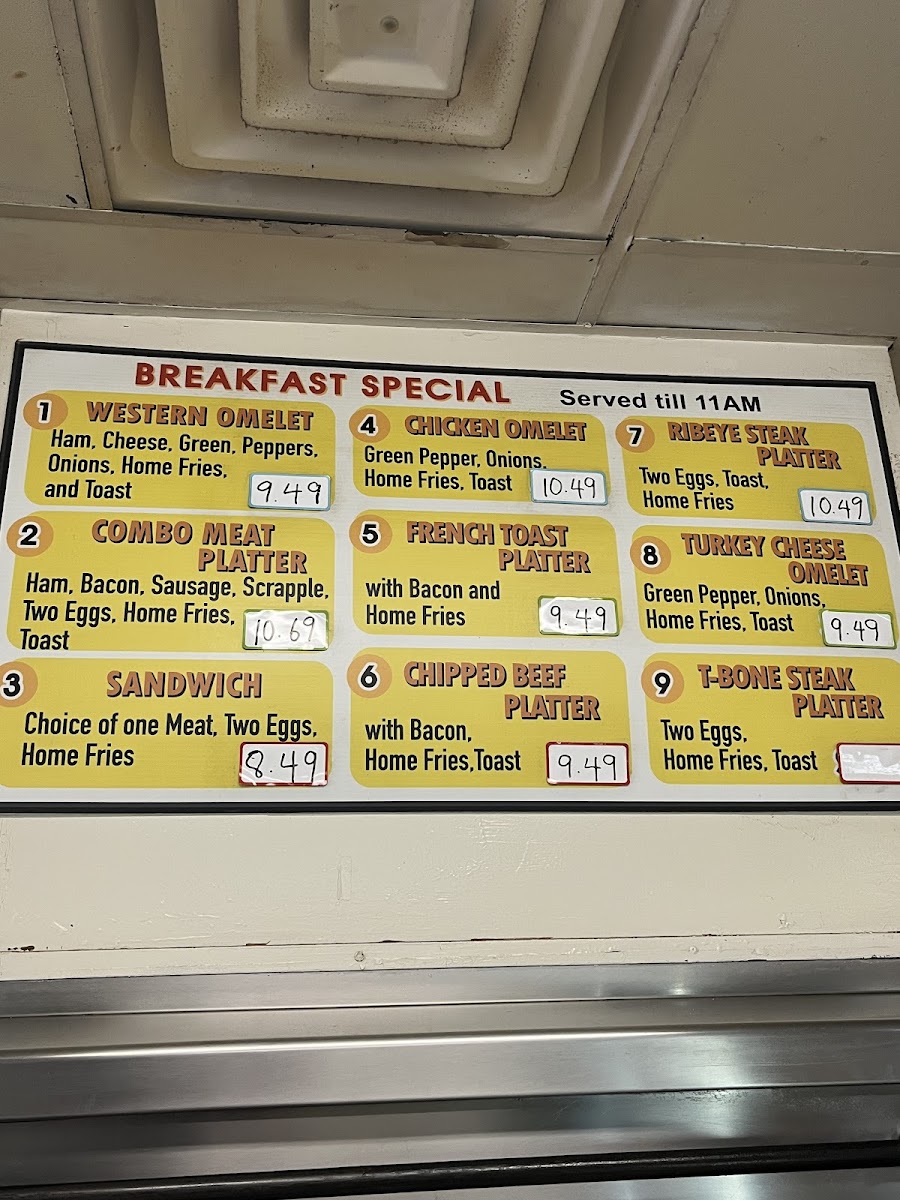 BREAKFAST SPECIAL
Served till 11AM
1 WESTERN OMELET
Ham, Cheese, Green, Peppers,
Onions, Home Fries,
and Toast
9.49
2 COMBO MEAT
PLATTER
Ham, Bacon, Sausage, Scrapple,
Two Eggs, Home Fries,
Toast
10.69
3 SANDWICH
Choice of one Meat, Two Eggs,
Home Fries
8.49
4 CHICKEN OMELET
Green Pepper, Onions,
Home Fries, Toast
10.49
5 FRENCH TOAST
PLATTER
with Bacon and
Home Fries
9.49
6 CHIPPED BEEF
PLATTER
with Bacon,
Home Fries,Toast
9.49
7 RIBEYE STEAK
PLATTER
Two Eggs, Toast,
Home Fries
10.49
8 TURKEY CHEESE
OMELET
Green Pepper, Onions,
Home Fries, Toast
9.49
9 T-BONE STEAK
PLATTER
Two Eggs,
Home Fries, Toast